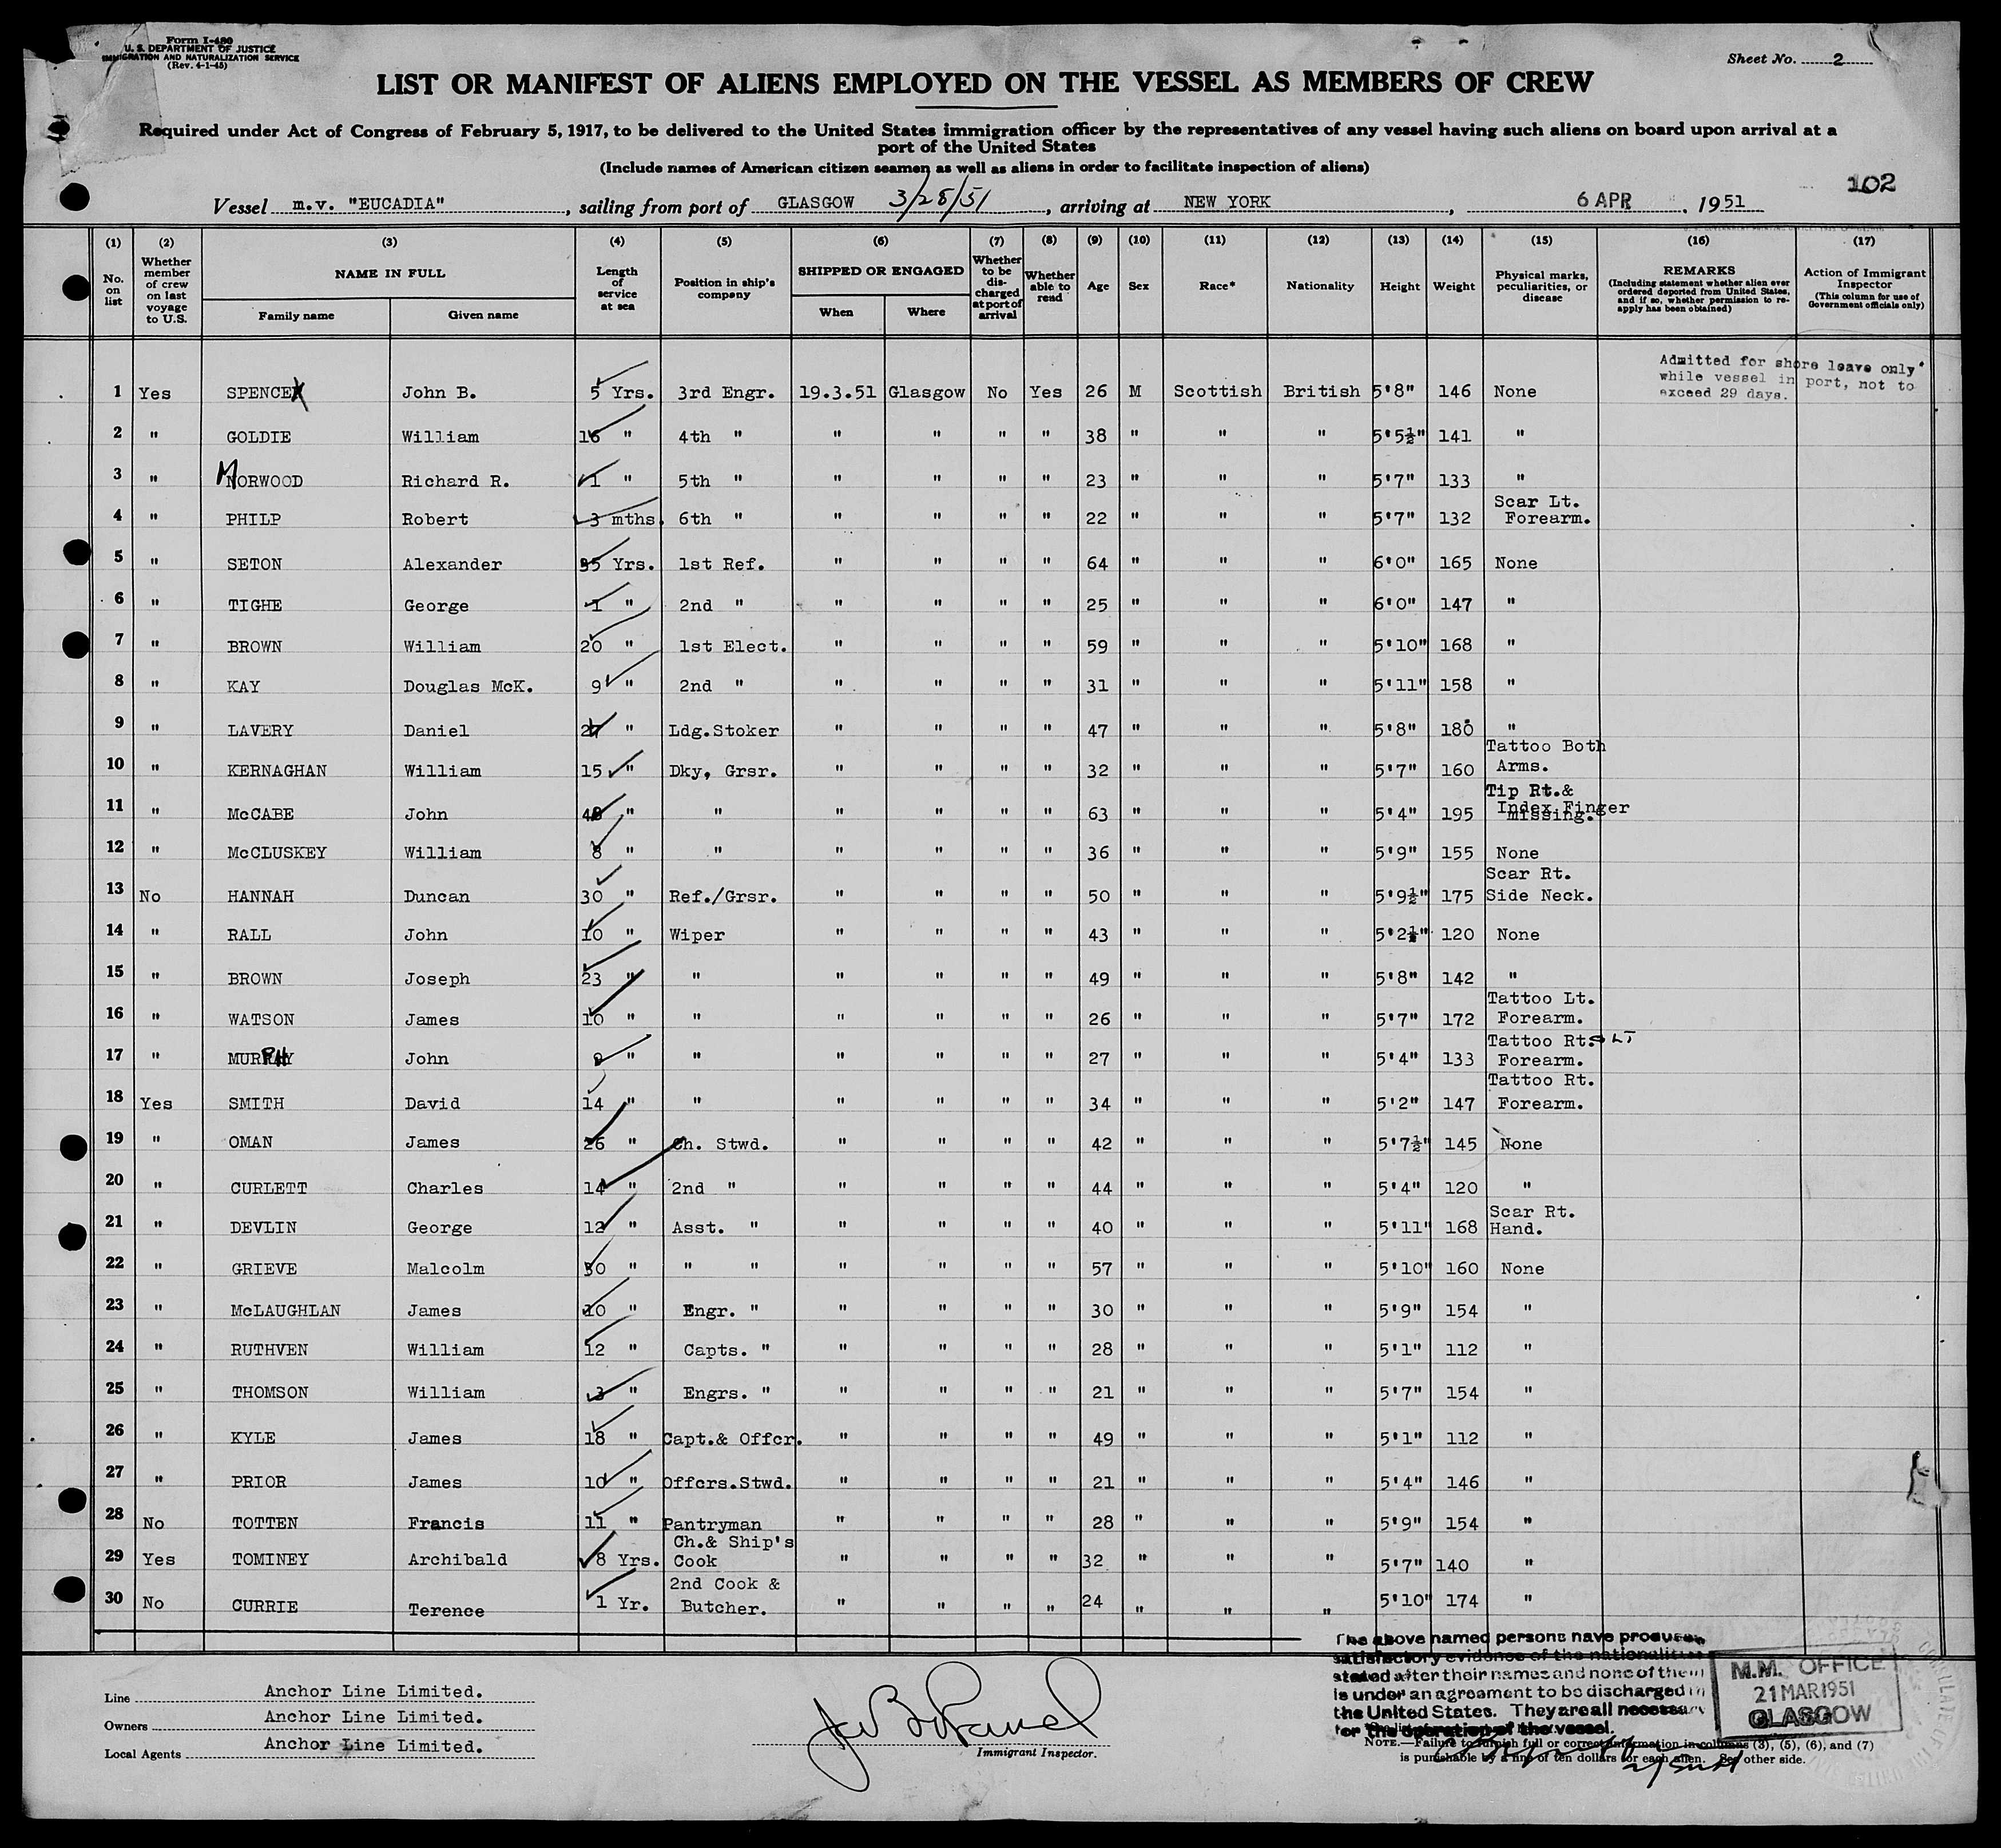 Form I-480
U. S. DEPARTMENT OF JUSTICE
IMMIGRATION AND NATURALIZATION SERVICE
(Rev. 4-1-45)
Sheet No. 2
LIST OR MANIFEST OF ALIENS EMPLOYED ON THE VESSEL AS MEMBERS OF CREW
Required under Act of Congress of February 5, 1917, to be delivered to the United States immigration officer by the representatives of any vessel having such aliens on board upon arrival at a
port of the United States
(Include names of American citizen seamen as well as aliens in order to facilitate inspection of aliens)
102
Vessel m.v. "EUCADIA", sailing from port of GLASGOW 3/28/51, arriving at NEW YORK, 6 APR, 1951
(1) (2) (3) (4) (5) (6) (7) (8) (9) (10) (11) (12) (13) (14) (15) (16) (17)
No. on list Whether member of crew on last voyage to U.S. NAME IN FULL Family name Given name Length of service at sea Position in ship's company SHIPPED OR ENGAGED When Where Whether to be discharged at port of arrival Whether able to read Age Sex Race* Nationality Height Weight Physical marks, peculiarities, or disease REMARKS (Including statement whether alien ever ordered deported from United States, and if so, whether permission to re-apply has been obtained) Action of Immigrant Inspector (This column for use of Government officials only)
Admitted for shore leave only
while vessel in port, not to
exceed 29 days.
1 Yes SPENCE John B. 5 Yrs. 3rd Engr. 19.3.51 Glasgow No Yes 26 M Scottish British 5'8" 146 None
2 " GOLDIE William 16 " 4th " " " " " 38 " " " 5'5½" 141 "
3 " MORWOOD Richard R. 1 " 5th " " " " " 23 " " " 5'7" 133 "
4 " PHILP Robert 3 mths. 6th " " " " " 22 " " " 5'7" 132 Scar Lt. Forearm.
5 " SETON Alexander 35 Yrs. 1st Ref. " " " " 64 " " " 6'0" 165 None
6 " TIGHE George 1 " 2nd " " " " " 25 " " " 6'0" 147 "
7 " BROWN William 20 " 1st Elect. " " " " 59 " " " 5'10" 168 "
8 " KAY Douglas McK. 9 " 2nd " " " " " 31 " " " 5'11" 158 "
9 " LAVERY Daniel 27 " Ldg.Stoker " " " " 47 " " " 5'8" 180 "
10 " KERNAGHAN William 15 " Dky, Grsr. " " " " 32 " " " 5'7" 160 Tattoo Both Arms.
11 " McCABE John 48 " " " " " " 63 " " " 5'4" 195 Tip Rt.& Index Finger missing.
12 " McCLUSKEY William 8 " " " " " " 36 " " " 5'9" 155 None
13 No HANNAH Duncan 30 " Ref./Grsr. " " " " 50 " " " 5'9½" 175 Scar Rt. Side Neck.
14 " RALL John 10 " Wiper " " " " 43 " " " 5'2½" 120 None
15 " BROWN Joseph 23 " " " " " " 49 " " " 5'8" 142 "
16 " WATSON James 10 " " " " " " 26 " " " 5'7" 172 Tattoo Lt. Forearm.
17 " MURPHY John " " " " " " 27 " " " 5'4" 133 Tattoo Rt. & LT Forearm.
18 Yes SMITH David 14 " " " " " " 34 " " " 5'2" 147 Tattoo Rt. Forearm.
19 " OMAN James 26 " Ch. Stwd. " " " " 42 " " " 5'7½" 145 None
20 " CURLETT Charles 14 " 2nd " " " " " 44 " " " 5'4" 120 "
21 " DEVLIN George 12 " Asst. " " " " " 40 " " " 5'11" 168 Scar Rt. Hand.
22 " GRIEVE Malcolm 30 " " " " " " " 57 " " " 5'10" 160 None
23 " McLAUGHLAN James 10 " Engr. " " " " " 30 " " " 5'9" 154 "
24 " RUTHVEN William 12 " Capts. " " " " " 28 " " " 5'1" 112 "
25 " THOMSON William 3 " Engrs. " " " " " 21 " " " 5'7" 154 "
26 " KYLE James 18 " Capt.& Offcr. " " " " 49 " " " 5'1" 112 "
27 " PRIOR James 10 " Offcrs.Stwd. " " " " 21 " " " 5'4" 146 "
28 No TOTTEN Francis 11 " Pantryman " " " " 28 " " " 5'9" 154 "
29 Yes TOMINEY Archibald 8 Yrs. Ch.& Ship's Cook " " " " 32 " " " 5'7" 140 "
30 No CURRIE Terence 1 Yr. 2nd Cook & Butcher. " " " " 24 " " " 5'10" 174 "
The above named persons have produced
satisfactory evidence of the nationalities
stated after their names and none of them
is under an agreement to be discharged in
the United States. They are all necessary
for the operation of the vessel.
M.M. OFFICE
21 MAR 1951
GLASGOW
Line Anchor Line Limited.
Owners Anchor Line Limited.
Local Agents Anchor Line Limited.
Immigrant Inspector.
NOTE.—Failure to furnish full or correct information in columns (3), (5), (6), and (7)
is punishable by a fine of ten dollars for each alien. See other side.